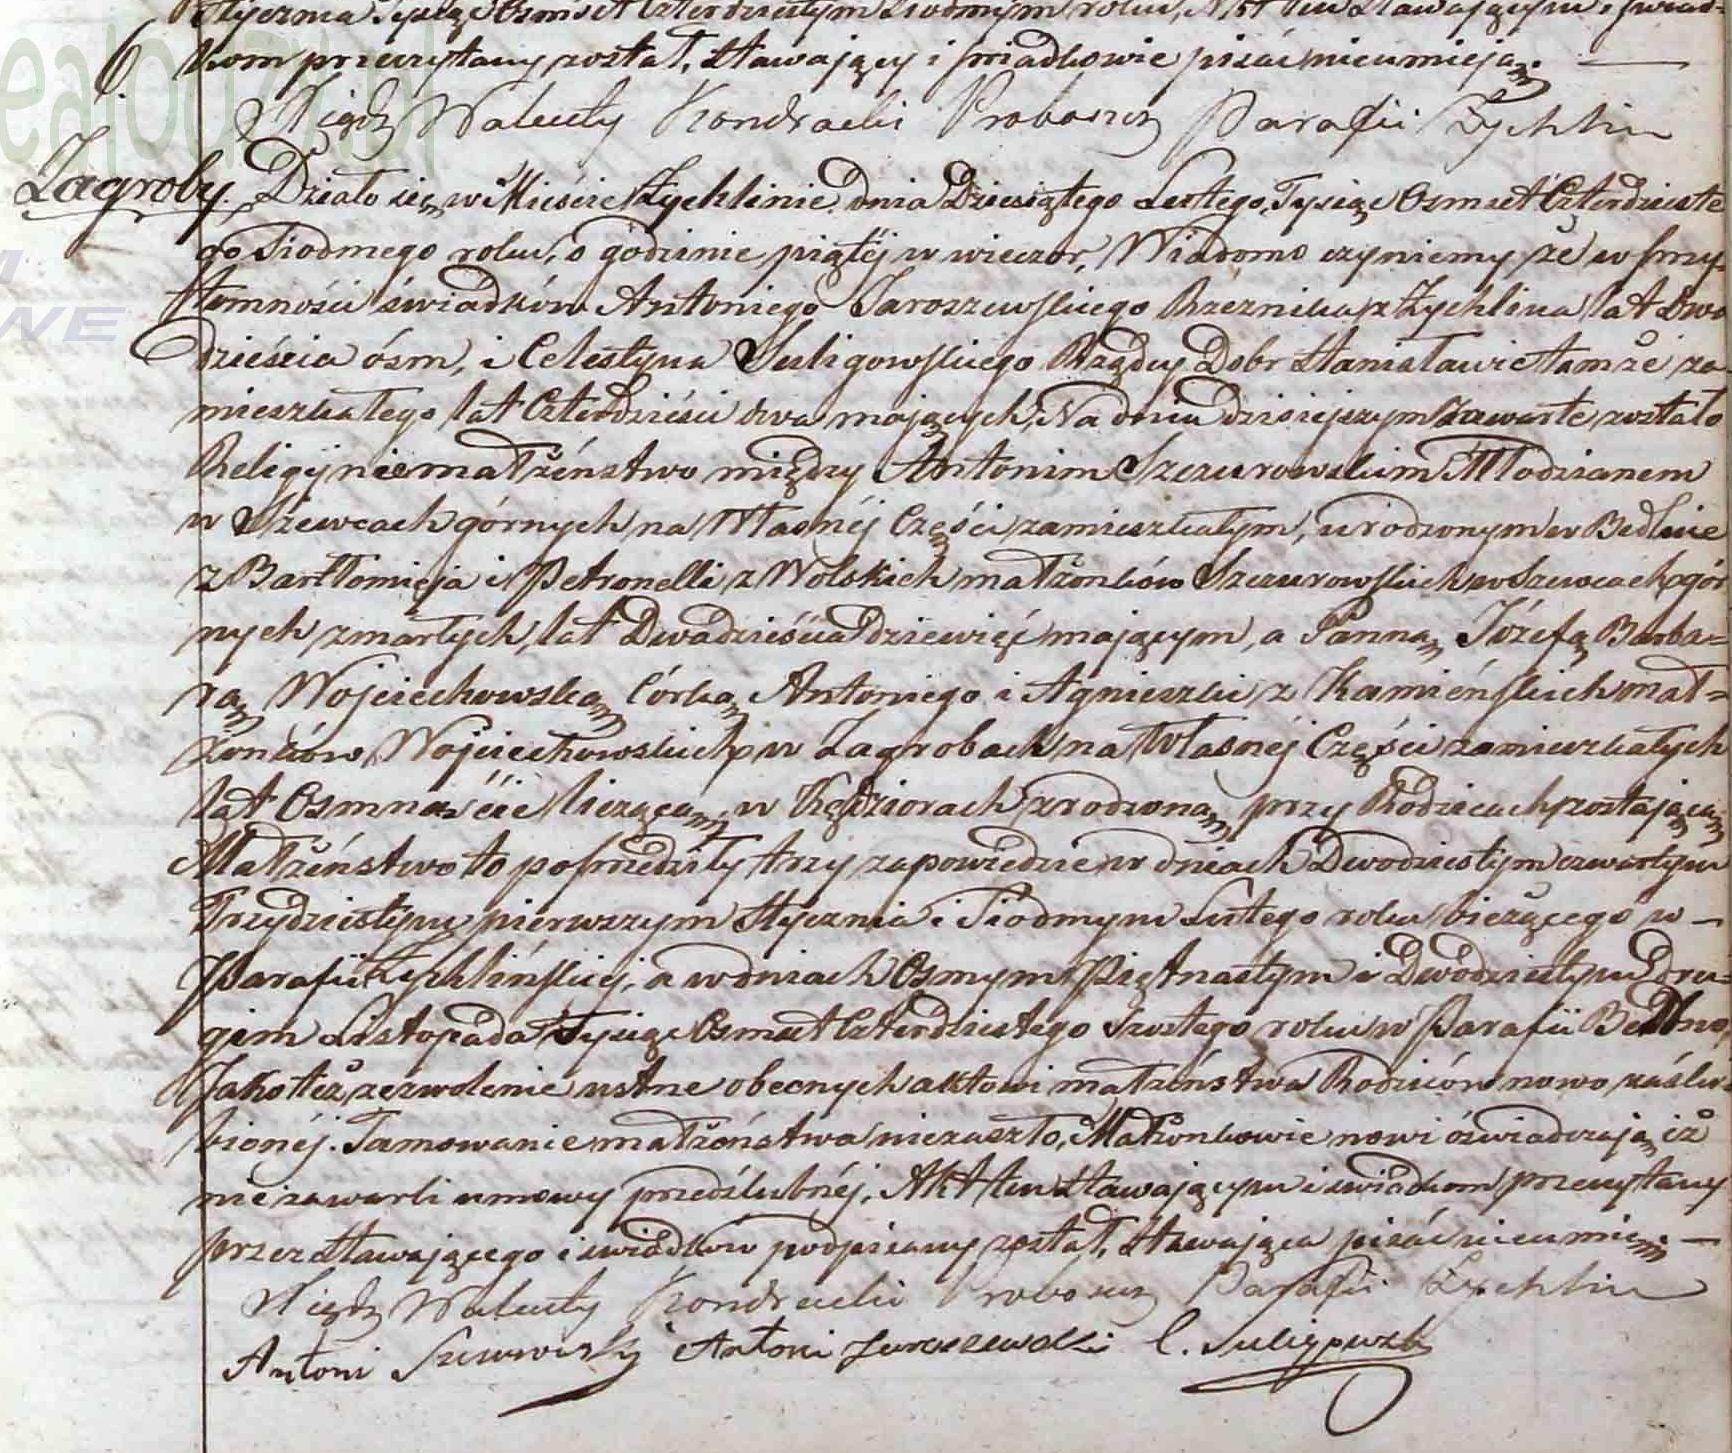 Stycznia Tysiąc Osmset Czterdziestym Siodmym roku, Akt ten Stawającym i świad-
kom przeczytany został, Stawający i świadkowie pisać nieumieją.
Xiądz Walenty Kondracki Proboszcz Parafii Żychlin
6.
Zagroby.
Działo się w Mieście Żychlinie dnia Dziesiątego Lutego, Tysiąc Osmset Czterdzieste
go Siodmego roku, o godzinie piątéj w wieczor, Wiadomo czyniemy że w przy-
tomności świadków Antoniego Jaroszewskiego Rzeźnika z Żychlina lat Dwa
dzieścia ósm, i Celestyna Suligowskiego Rządcy Dobr Stanisławic tamże za-
mieszkałego lat Czterdzieści dwa mających, Na dniu dzisiejszym zawarte zostało
Religijnie małżeństwo między Antonim Szczurowskim Młodzianem
w Szewcach górnych na Własnéj Części zamieszkałym, urodzonym w Bedlnie
z Bartłomieja i Petronelli z Wolskich małżonków Szczurowskich w Szewcach gór
nych zmarłych, lat Dwadzieścia dziewięć mającym, a Panną Józefą Barba-
rą Wojciechowską Córką Antoniego i Agnieszki z Kamieńskich mał-
żonków Wojciechowskich w Zagrobach na Własnéj Części zamieszkałych
lat Osmnaście liczącą, w Kędziorach zrodzoną, przy Rodzicach zostającą
Małżeństwo to poprzedziły trzy zapowiedzie w dniach Dwudziestym czwartym
Trzydziestym pierwszym Stycznia i Siódmym Lutego roku bieżącego w
Parafii Żychlińskiej, a w dniach Osmym Piętnastym i Dwudziestym dru-
gim Listopada Tysiąc Osmset Czterdziestego Szostego roku w Parafii Bedlno,
Jako też zezwolenie ustne obecnych aktowi małżeństwa Rodziców nowo zaślu-
bionéj. Tamowanie małżeństwa niezaszło, Małżonkowie nowi oświadczają iż
nie zawarli umowy przedślubnéj, Akt ten Stawającym i świadkom przeczytany
przez Stawającego i świadków podpisany został, Stawająca pisać nieumie.
Xiądz Walenty Kondracki Proboszcz Parafii Żychlin
Antoni Szczurowski Antoni Jaroszewski C. Suligowski